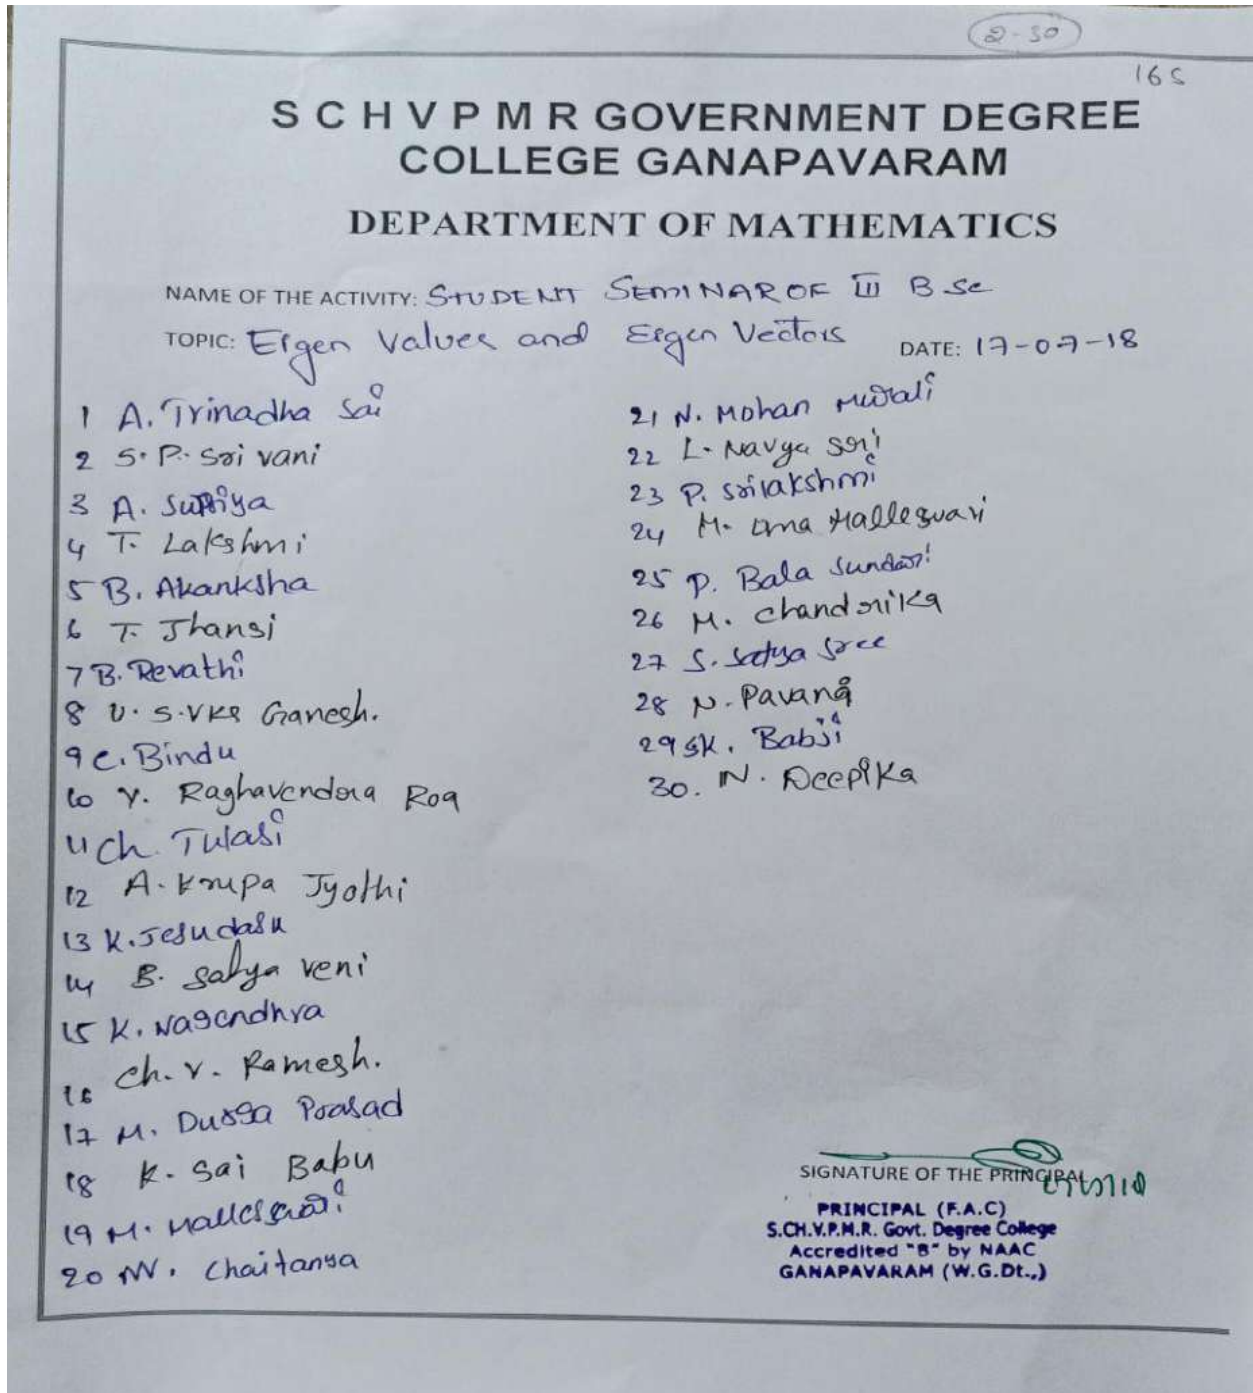 2-30
165
S C H V P M R GOVERNMENT DEGREE
COLLEGE GANAPAVARAM
DEPARTMENT OF MATHEMATICS
NAME OF THE ACTIVITY: STUDENT SEMINAR OF III B.Sc
TOPIC: Eigen Values and Eigen Vectors DATE: 17-07-18
1 A. Trinadha Sai
2 S. P. Sri vani
3 A. Supriya
4 T. Lakshmi
5 B. Akanksha
6 T. Jhansi
7 B. Revathi
8 U. S. VKS Ganesh.
9 C. Bindu
10 Y. Raghavendra Rao
11 Ch. Tulasi
12 A. Krupa Jyothi
13 K. Jesudasu
14 B. Satya veni
15 K. Nagendhra
16 Ch. V. Ramesh.
17 M. Durga Prasad
18 K. Sai Babu
19 M. Malleswari
20 N. Chaitanya
21 N. Mohan Murali
22 L. Navya Sri
23 P. Srilakshmi
24 M. Uma Malleswari
25 P. Bala Sundari
26 M. Chandrika
27 S. Satya Sree
28 N. Pavani
29 SK. Babji
30. N. Deepika
SIGNATURE OF THE PRINCIPAL
PRINCIPAL (F.A.C)
S.CH.V.P.M.R. Govt. Degree College
Accredited "B" by NAAC
GANAPAVARAM (W.G.Dt.,)